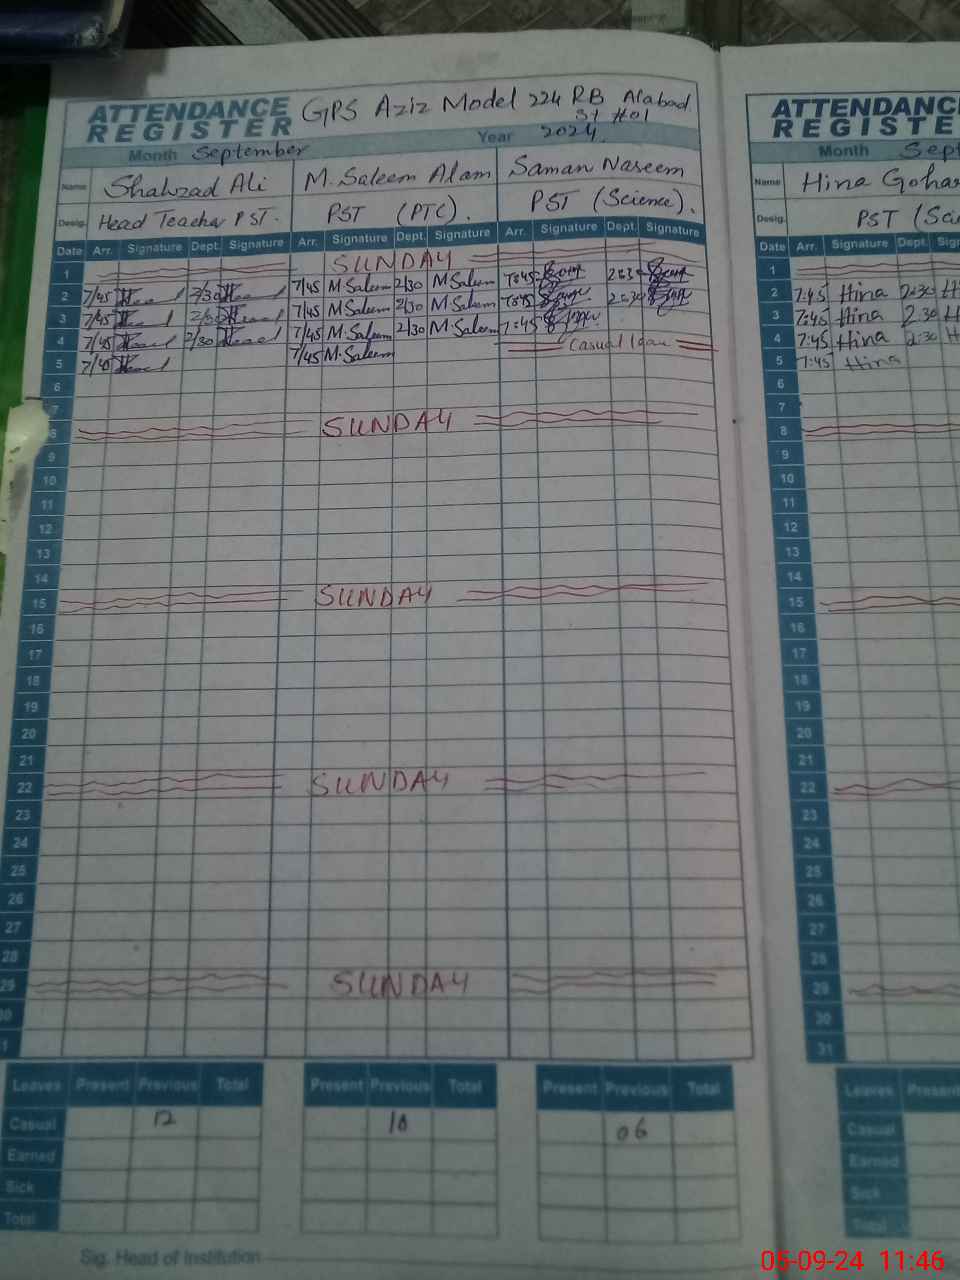 ATTENDANCE REGISTER GPS Aziz Model 224 RB Alabad St #01
Month September Year 2024
Name Shahzad Ali M. Saleem Alam Saman Naseem
Desig. Head Teacher PST. PST (PTC). PST (Science).
Date Arr. Signature Dept. Signature Arr. Signature Dept. Signature Arr. Signature Dept. Signature
1 SUNDAY
2 7/45 2/30 7/45 M Saleem 2/30 M Saleem 7:45 2:30
3 7/45 2/30 7/45 M Saleem 2/30 M Saleem 7:45 2:30
4 7/45 2/30 7/45 M. Saleem 2/30 M Saleem 7:45
5 7/45 7/45 M. Saleem Casual
6
7
8 SUNDAY
9
10
11
12
13
14
15 SUNDAY
16
17
18
19
20
21
22 SUNDAY
23
24
25
26
27
28
29 SUNDAY
30
31
Leaves Present Previous Total Present Previous Total Present Previous Total
Casual 12 10 06
Earned
Sick
Total
Sig. Head of Institution
ATTENDANC
REGISTE
Month Sept
Name Hina Gohar
Desig. PST (Sci
Date Arr. Signature Dept. Sig
1
2 7:45 Hina 2:30 H
3 7:45 Hina 2:30 H
4 7:45 Hina 2:30 H
5 7:45 Hina
6
7
8
9
10
11
12
13
14
15
16
17
18
19
20
21
22
23
24
25
26
27
28
29
30
31
Leaves Present
Casual
Earned
Sick
Total
05-09-24 11:46